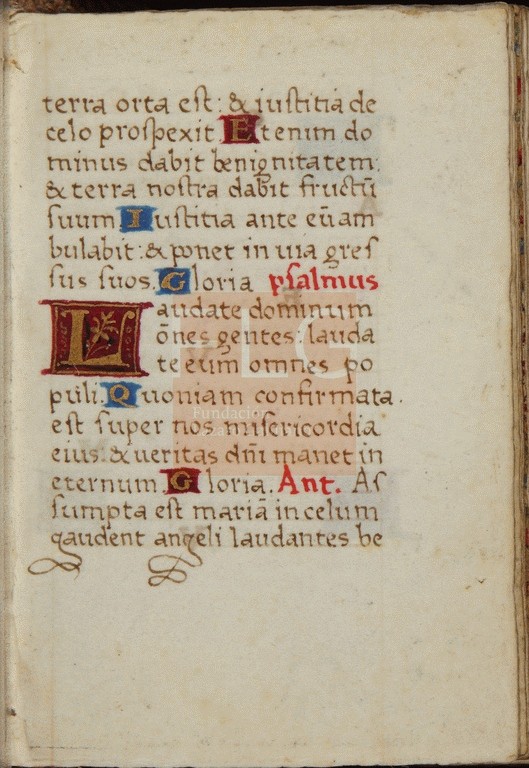 terra orta est: & iustitia de
celo prospexit Etenim do
minus dabit benignitatem:
& terra nostra dabit fructū
suum Iustitia ante eūam
bulabit: & ponet in uia gres
sus suos. Gloria psalmus
Laudate dominum
ōnes gentes: lauda
te eum omnes po
puli. Quoniam confirmata.
est super nos misericordia
eius: & ueritas dn̄i manet in
eternum. Gloria. Ant. As
sumpta est mariā in celum
gaudent angeli laudantes be
LG
Fundación